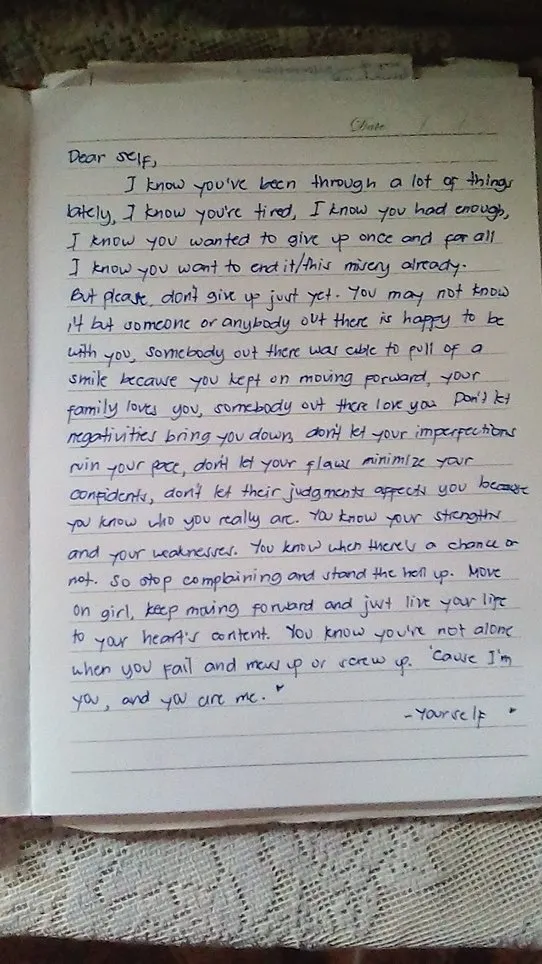 Date
Dear self,
I know you've been through a lot of things
lately, I know you're tired, I know you had enough,
I know you wanted to give up once and for all
I know you want to end it/this misery already.
But please, don't give up just yet. You may not know
it but someone or anybody out there is happy to be
with you, somebody out there was able to pull of a
smile because you kept on moving forward, your
family loves you, somebody out there love you. Don't let
negativities bring you down, don't let your imperfections
ruin your pace, don't let your flaws minimize your
confidents, don't let their judgments affects you because
you know who you really are. You know your strengths
and your weaknesses. You know when there's a chance or
not. So stop complaining and stand the hell up. Move
on girl, keep moving forward and just live your life
to your heart's content. You know you're not alone
when you fail and mess up or screw up. 'Cause I'm
you, and you are me."
-Yourself